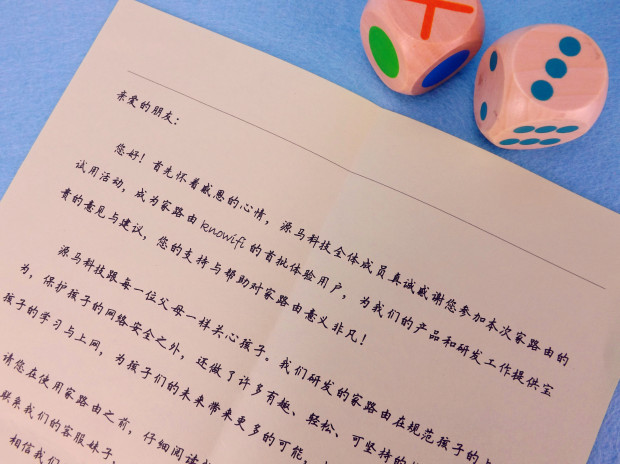 亲爱的朋友：
您好！首先怀着感恩的心情，源马科技全体成员真诚感谢您参加本次家路由的
试用活动，成为家路由knowifi的首批体验用户，为我们的产品和研发工作提供宝
贵的意见与建议，您的支持与帮助对家路由意义非凡！
源马科技跟每一位父母一样关心孩子。我们研发的家路由在规范孩子的上
为，保护孩子的网络安全之外，还做了许多有趣、轻松、可坚持的
孩子的学习与上网，为孩子们的未来带来更多的可能，
请您在使用家路由之前，仔细阅读
联系我们的客服妹子，
相信我们